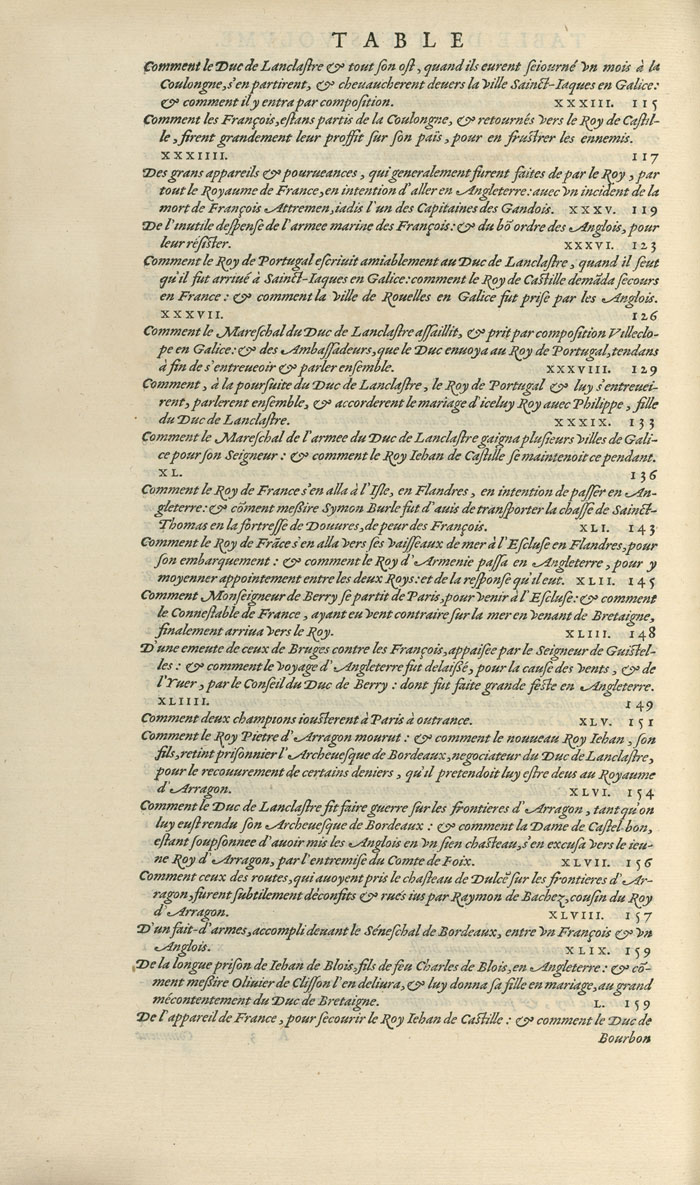 TABLE
Comment le Duc de Lanclaſtre & tout ſon oſt, quand ils eurent ſeiourné vn mois à la
Coulongne, s'en partirent, & cheuaucherent deuers la ville Sainct-Iaques en Galice:
& comment il y entra par compoſition. XXXIII. 115
Comment les François, eſtans partis de la Coulongne, & retournés vers le Roy de Caſtil-
le, firent grandement leur proffit ſur ſon païs, pour en fruſtrer les ennemis.
XXXIIII. 117
Des grans appareils & pourueances, qui generalement furent faites de par le Roy, par
tout le Royaume de France, en intention d'aller en Angleterre: auec vn incident de la
mort de François Attremen, iadis l'un des Capitaines des Gandois. XXXV. 119
De l'inutile deſpenſe de l'armee marine des François: & du bõ ordre des Anglois, pour
leur réſiſter. XXXVI. 123
Comment le Roy de Portugal eſcriuit amiablement au Duc de Lanclaſtre, quand il ſeut
qu'il fut arriué à Sainct-Iaques en Galice: comment le Roy de Caſtille demãda ſecours
en France: & comment la ville de Rouelles en Galice fut priſe par les Anglois.
XXXVII. 126
Comment le Mareſchal du Duc de Lanclaſtre aſſaillit, & prit par compoſition Villeclo-
pe en Galice: & des Ambaſſadeurs, que le Duc enuoya au Roy de Portugal, tendans
à fin de s'entreueoir & parler enſemble. XXXVIII. 129
Comment, à la pourſuite du Duc de Lanclaſtre, le Roy de Portugal & luy s'entreuei-
rent, parlerent enſemble, & accorderent le mariage d'iceluy Roy auec Philippe, fille
du Duc de Lanclaſtre. XXXIX. 133
Comment le Mareſchal de l'armee du Duc de Lanclaſtre gaigna pluſieurs villes de Gali-
ce pour ſon Seigneur: & comment le Roy Iehan de Caſtille ſe maintenoit ce pendant.
XL. 136
Comment le Roy de France s'en alla à l'Iſle, en Flandres, en intention de paſſer en An-
gleterre: & cõment meßire Symon Burle fut d'auis de tranſporter la chaſſe de Sainct-
Thomas en la fortreſſe de Douures, de peur des François. XLI. 143
Comment le Roy de Frãce s'en alla vers ſes vaiſſeaux de mer à l'Eſcluſe en Flandres, pour
ſon embarquement: & comment le Roy d'Armenie paſſa en Angleterre, pour y
moyenner appointement entre les deux Roys: et de la reſponſe qu'il eut. XLII. 145
Comment Monſeigneur de Berry ſe partit de Paris, pour venir à l'Eſcluſe: & comment
le Conneſtable de France, ayant eu vent contraire ſur la mer en venant de Bretaigne,
finalement arriua vers le Roy. XLIII. 148
D'une emeute de ceux de Bruges contre les François, appaiſée par le Seigneur de Guiſtel-
les: & comment le voyage d'Angleterre fut delaißé, pour la cauſe des vents, & de
l'Yuer, par le Conſeil du Duc de Berry: dont fut faite grande feſte en Angleterre.
XLIIII. 149
Comment deux champions iouſterent à Paris à outrance. XLV. 151
Comment le Roy Pietre d'Arragon mourut: & comment le nouueau Roy Iehan, ſon
fils, retint priſonnier l'Archeueſque de Bordeaux, negociateur du Duc de Lanclaſtre,
pour le recouurement de certains deniers, qu'il pretendoit luy eſtre deus au Royaume
d'Arragon. XLVI. 154
Comment le Duc de Lanclaſtre fit faire guerre ſur les frontieres d'Arragon, tant qu'on
luy euſt rendu ſon Archeueſque de Bordeaux: & comment la Dame de Caſtel-bon,
eſtant ſoupſonnee d'auoir mis les Anglois en vn ſien chaſteau, s'en excuſa vers le ieu-
ne Roy d'Arragon, par l'entremiſe du Comte de Foix. XLVII. 156
Comment ceux des routes, qui auoyent pris le chaſteau de Dulcẽ ſur les frontieres d'Ar-
ragon, furent ſubtilement déconfits & rués ius par Raymon de Bachez, couſin du Roy
d'Arragon. XLVIII. 157
D'un fait-d'armes, accompli deuant le Séneſchal de Bordeaux, entre vn François & vn
Anglois. XLIX. 159
De la longue priſon de Iehan de Blois, fils de feu Charles de Blois, en Angleterre: & cõ-
ment meßire Oliuier de Cliſſon l'en deliura, & luy donna ſa fille en mariage, au grand
mécontentement du Duc de Bretaigne. L. 159
De l'appareil de France, pour ſecourir le Roy Iehan de Caſtille: & comment le Duc de
Bourbon